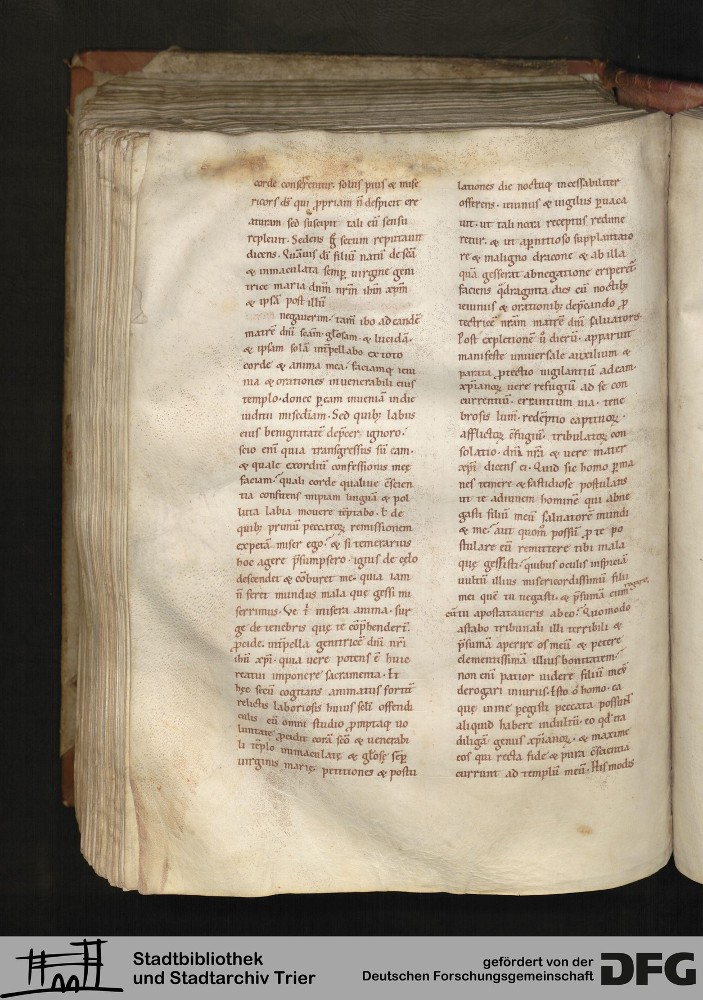 corde conseremur. solus pius & mise
ricors ds̄ qui p̱priam n̄ despicit cre
aturam sed suscepit tali eū sensu
repleuit. Sedens g̅ secum reputauit
dicens. Quāuis dī filiū natū de scā
& inmaculata semp̱ uirgine geni
trice maria dn̄m nr̄m ih̄m xp̄m
& ipsā post illū
negauerim. tam̄ ibo ad eandē
matrē dn̄i scām. gl̄osam. & lucidā.
& ipsam solā inp̱ellabo ex toto
corde & anima mea. faciamq; ieiu
nia & orationes in uenerabili eius
templo. donec p̱ eam inueniā in die
iudicii misc̄diam. Sed quib; labiis
eius benignitatē dep̱cer. ignoro.
scio enī quia transgressus sū eam.
& quale exordiū confessionis meę
faciam. quali corde qualiue c̄scien
tia confitens impiam linguā & pol
luta labia mouere tēptabo. ł de
quib; primū peccatoꝝ remissionem
expetā miser ego. & si temerarius
hoc agere p̄sumpsero. ignis de cęlo
descendet & cōburet me. quia iam
n̄ feret mundus mala quę gessi mi
serrimus. Ve t̄ misera anima. sur
ge de tenebris quę te cōp̱henderī.
p̱cide. inp̱ella genitricē dn̄i nr̄i
ih̄u xp̄i. quia uere potens ē huic
reatui imponere sacramenta. Et
hęc secū cogitans animatus fortit̄
relictis laboriosis huius scl̄i offendi
culis cū omni studio p̱mptaq; uo
luntate p̱cidit corā scā & uenerabi
li tēplo inmaculatę & gl̄osę sep̱
uirginis marię. petitiones & postu
lationes die noctuq; incessabiliter
offerens. ieiuniis & uigiliis p̱uaca
uit. ut tali noxa receptus redime
retur. & ut a p̱nitioso supplantato
re & maligno dracone & ab illa
quā gesserat abnegatione eriperet.
faciens q̄draginta dies cū noctib;
ieiuniis & orationib; dep̱cando p̱
tectricē nr̄am matrē dn̄i saluatoris.
Post expletionē ū dierū. apparuit
manifeste uniuersale auxilium &
parata p̱tectio uigilantiū ad eam.
xp̄ianoꝝ uere refugiū ad se con
currentiū. errantium uia. tene
brosis lum̄. redēptio captiuoꝝ.
afflictoꝝ c̄fugiū. tribulatoꝝ con
solatio. dn̄a nr̄a & uere mater
xp̄i dicens ei. Quid sic homo p̱ma
nes temere & fastidiose postulans
ut te adiuuem hominē qui abne
gasti filiū meū saluatorē mundi
& me. aut quom̄ possū p̱ te po
stulare eū remittere tibi mala
quę gessisti. quibus oculis inspiciā
uultū illius misericordissimū filii
mei quē tu negasti. & p̄sumā eum
cū tu apostataueris ab eo. Quomodo
astabo tribunali illi terribili &
p̄sumā aperire os meū & petere
clementissimā illius bonitatem.
non enī patior uidere filiū meū
derogari iniuriis. Esto o homo. ea
quę in me pegisti peccata possunt
aliquid habere indultū. eo qđ ita
diligā genus xp̄ianoꝝ. & maxime
eos qui recta fide & pura c̄scientia
currunt ad templū meū. His modis
Stadtbibliothek
und Stadtarchiv Trier
gefördert von der
Deutschen Forschungsgemeinschaft
DFG